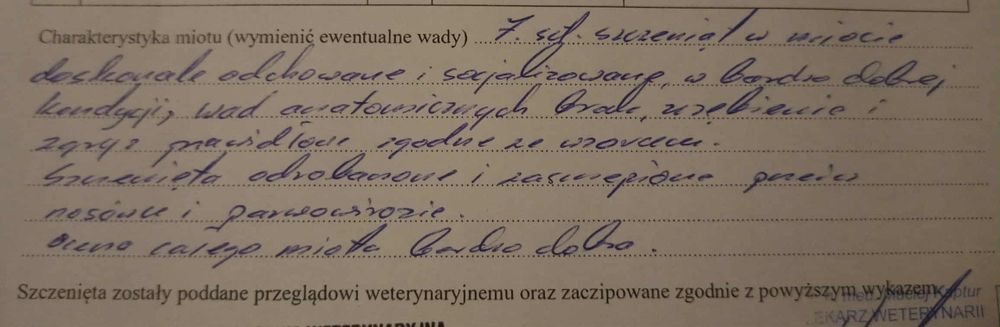 Charakterystyka miotu (wymienić ewentualne wady) 7. szt. szczeniąt w miocie
doskonale odchowane i socjalizowane, w bardzo dobrej
kondycji, wad anatomicznych brak, uzębienie i
zgryz prawidłowe zgodne ze wzorcem.
Szczenięta odrobaczone i zaszczepione przeciw
nosówce i parwowirozie.
ocena całego miotu bardzo dobra.
Szczenięta zostały poddane przeglądowi weterynaryjnemu oraz zaczipowane zgodnie z powyższym wykazem
EKARZ WETERYNARII